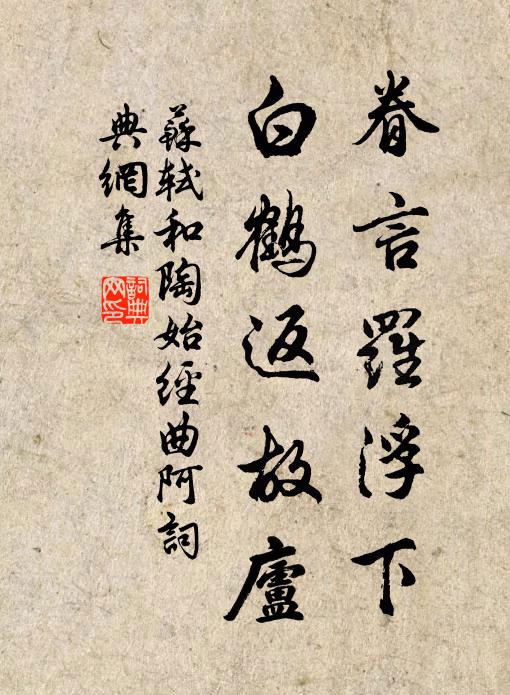 眷言羅浮下
白鶴返故廬
蘇軾和陶始經曲阿詞
典網集
詞典
网印